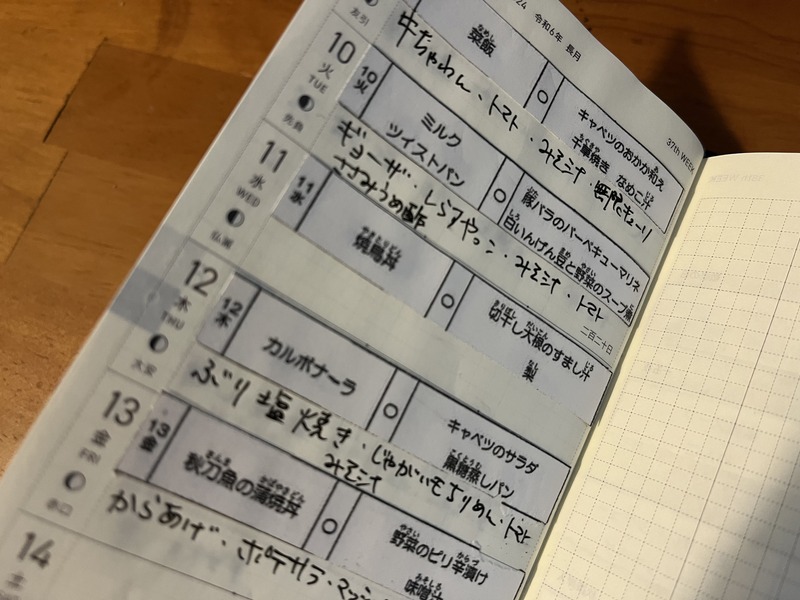 24 令和6年 長月
友引
菜飯
なめし
○
キャベツのおかか和え
千草焼き なめこ汁
37th WEEK
牛ちゃわん・トマト・みそ汁
10
火
TUE
先負
10
火
ミルク
ツイストパン
○
豚バラのバーベキューマリネ
白いんげん豆と野菜のスープ煮
ギョーザ・しらすやっこ・みそ汁・トマト
ささみうめ酢
二百二十日
11
水
WED
仏滅
11
水
焼鳥丼
やきとりどん
○
切干し大根のすまし汁
梨
なし
12
木
THU
大安
12
木
カルボナーラ
○
キャベツのサラダ
黒糖蒸しパン
ぶり塩焼き・じゃがいもちりめん・トマト
みそ汁
13
金
FRI
赤口
13
金
秋刀魚の蒲焼丼
さんま かばやきどん
○
野菜のピリ辛漬け
味噌汁
からあげ・ポテサラ・マッシ
14
土